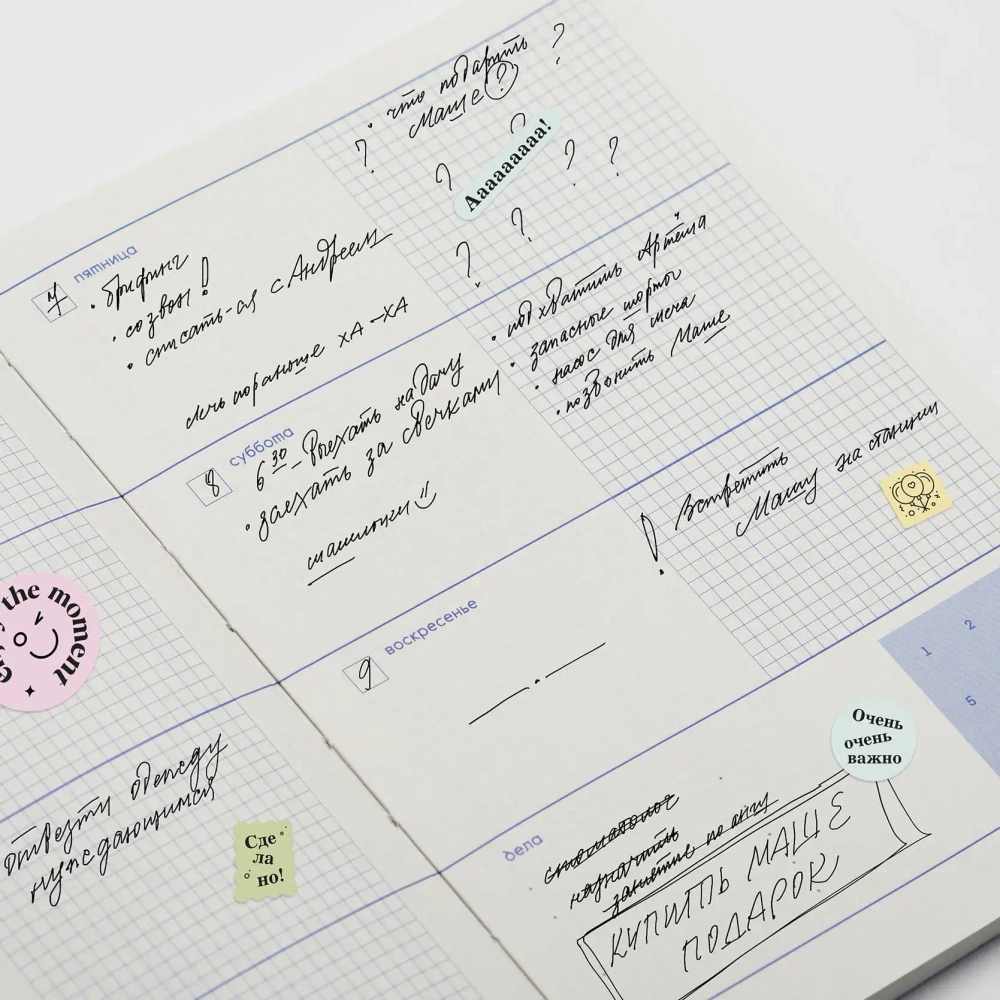 the moment
отвезти одежду
нуждающимся
Сде
ла
но!
пятница
7
• брифинг
• созвон!
• списать-ся с Андреем
лечь пораньше ХА-ХА
• что подарить ?
Маше ?
? ? ? ? ? ? ?
Ааааааааа!
суббота
8
6 30 - выехать на дачу
• заехать за свечками
шашлыки
• подхватить Артёма
• запасные шорты
• насос для мяча
• позвонить Маше
воскресенье
9
! Встретить
Машу на станции
1 2
5
дела
стоматолог
назначить
занятие по англ
Очень
очень
важно
КУПИТЬ МАШЕ
ПОДАРОК